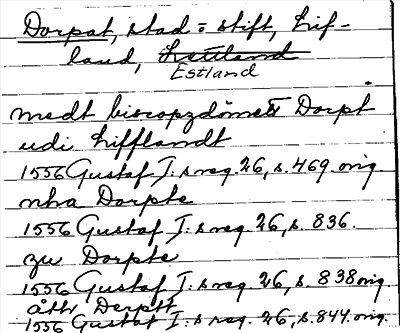 Dorpat, stad o stift, Lif-
land, Lettland
Estland
medt biscopzdömett Dorpt
udi Lifflandt
1556 Gustaf I:s reg. 26, s. 469 orig.
nha Dorpte
1556 Gustaf I:s reg. 26, s. 836.
zu Dorpte
1556 Gustaf I:s reg. 26, s. 838 orig.
åthr Derptt
1556 Gustaf I:s reg. 26, s. 844 orig.